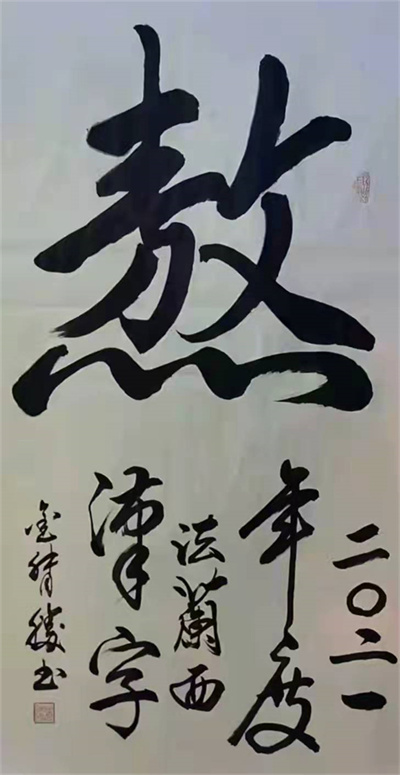 熬
二〇二一
年度
法蘭西
漢字
金勝书